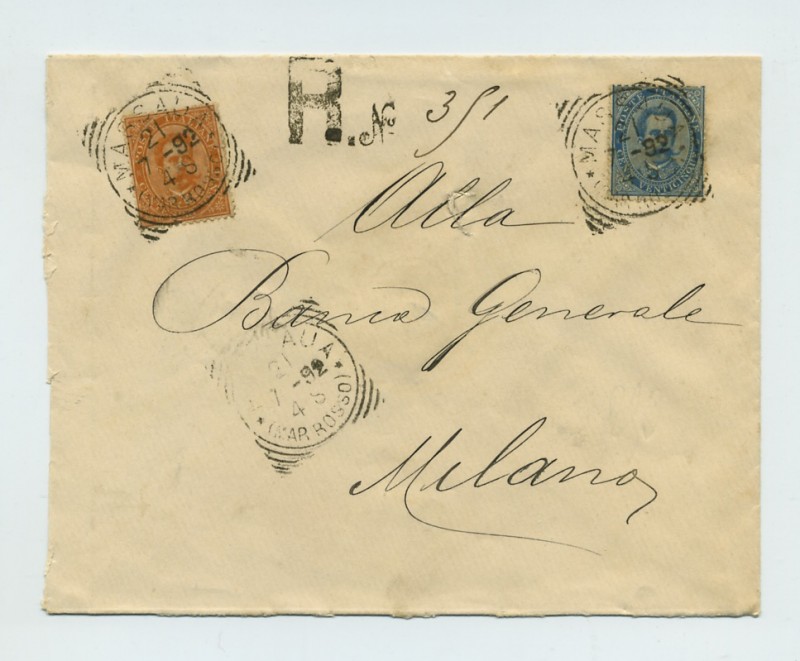 R. No 351
MASSAUA
21
7-92
4 S
(MAR ROSSO)
MAS
-92
POSTE
VENTICINQUE
Alla
Banca Generale
AUA
21
7-92
4 S
(MAR ROSSO)
Milano